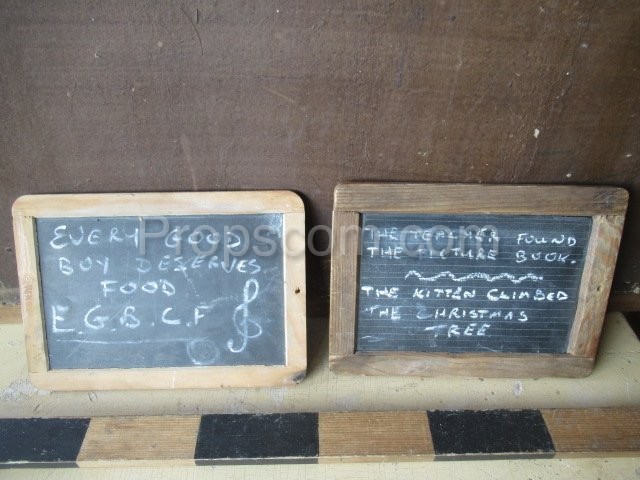 EVERY GOOD
BOY DESERVES
FOOD
E.G.B.C.F
THE TEACHER FOUND
THE PICTURE BOOK.
THE KITTEN CLIMBED
THE CHRISTMAS
TREE
Propscom.com